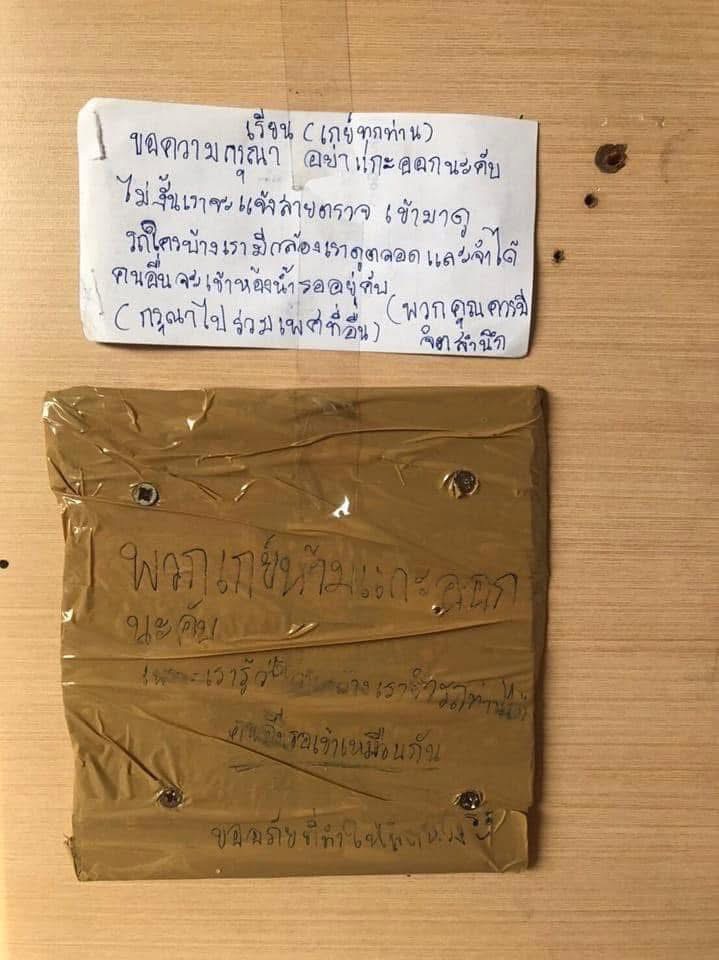 เรียน (เกย์ทุกท่าน)
ขอความกรุณา อย่าแกะออกนะคับ
ไม่งั้นเราจะแจ้งสายตรวจ เข้ามาดู
รถใครบ้างเรามีกล้องเราดูตลอดและจำได้
คนอื่นจะเข้าห้องน้ำรออยู่คับ
(กรุณาไปร่วมเพศที่อื่น) (พวกคุณควรมี
จิตสำนึก
พวกเกย์ห้ามแกะออก
นะคับ
เรารู้
รอเข้าเหมือนกัน
ขออภัยที่ทำให้